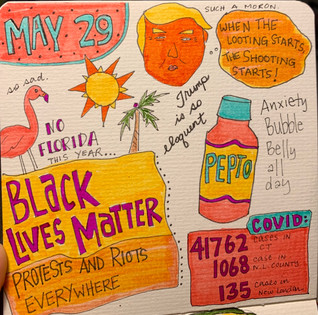 MAY 29
SUCH A MORON.
WHEN THE
LOOTING STARTS,
THE SHOOTING
STARTS!
so sad.
NO
FLORIDA
THIS YEAR...
Trump
is so
eloquent
PEPTO
Anxiety
Bubble
Belly
all
day
BLACK
LIVES MATTER
PROTESTS AND RIOTS
EVERYWHERE
COVID:
41762 cases in
CT
1068 cases in
N.L. COUNTY
135 cases in
New London